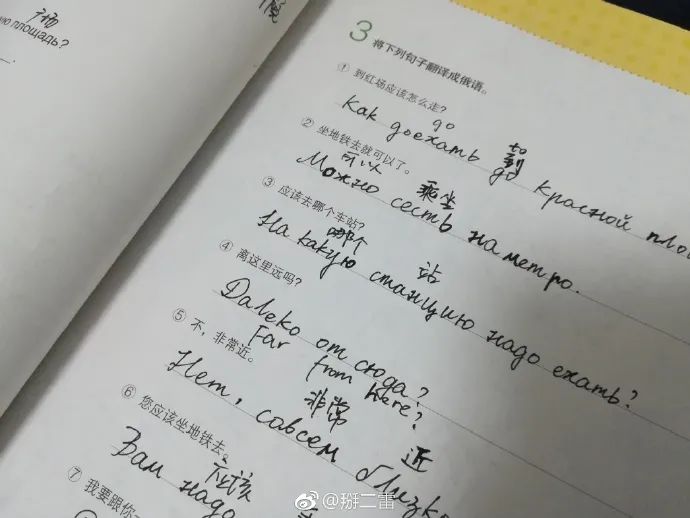 广场
площадь?
院
3 将下列句子翻译成俄语。
① 到红场应该怎么走?
go to 到
Как доехать до красной пло
② 坐地铁去就可以了。
可以 乘坐
Можно сесть на метро.
③ 应该去哪个车站?
哪个 站
На какую станцию надо ехать?
④ 离这里远吗?
Daleko от сюда?
Far from here?
⑤ 不,非常近。
非常 近
Нет, совсем близко
⑥ 您应该坐地铁去。
应该
Вам надо
⑦ 我要跟你
@掰二雷